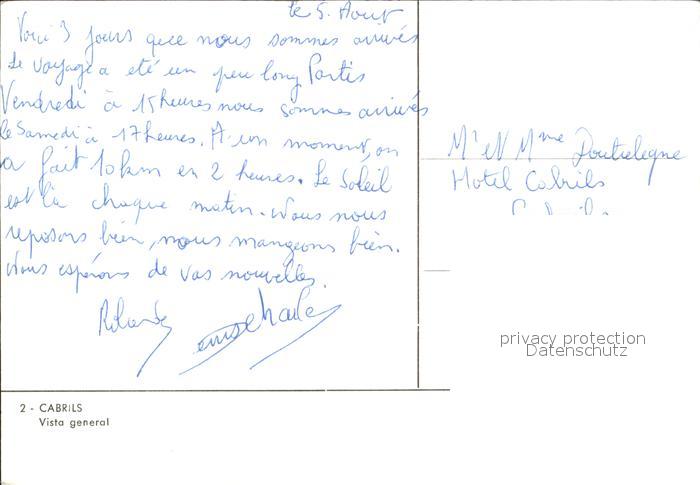 le 5. Août
Voici 3 jours que nous sommes arrivés
Le voyage a été un peu long Partis
Vendredi à 15 heures nous sommes arrivés
le Samedi à 17 heures. A un moment, on
a fait 10 km en 2 heures. Le Soleil
est là chaque matin. Nous nous
reposons bien, nous mangeons bien.
Nous espérons de vos nouvelles.
Mr et Mme
Hotel Cabrils
privacy protection
Datenschutz
2 - CABRILS
Vista general